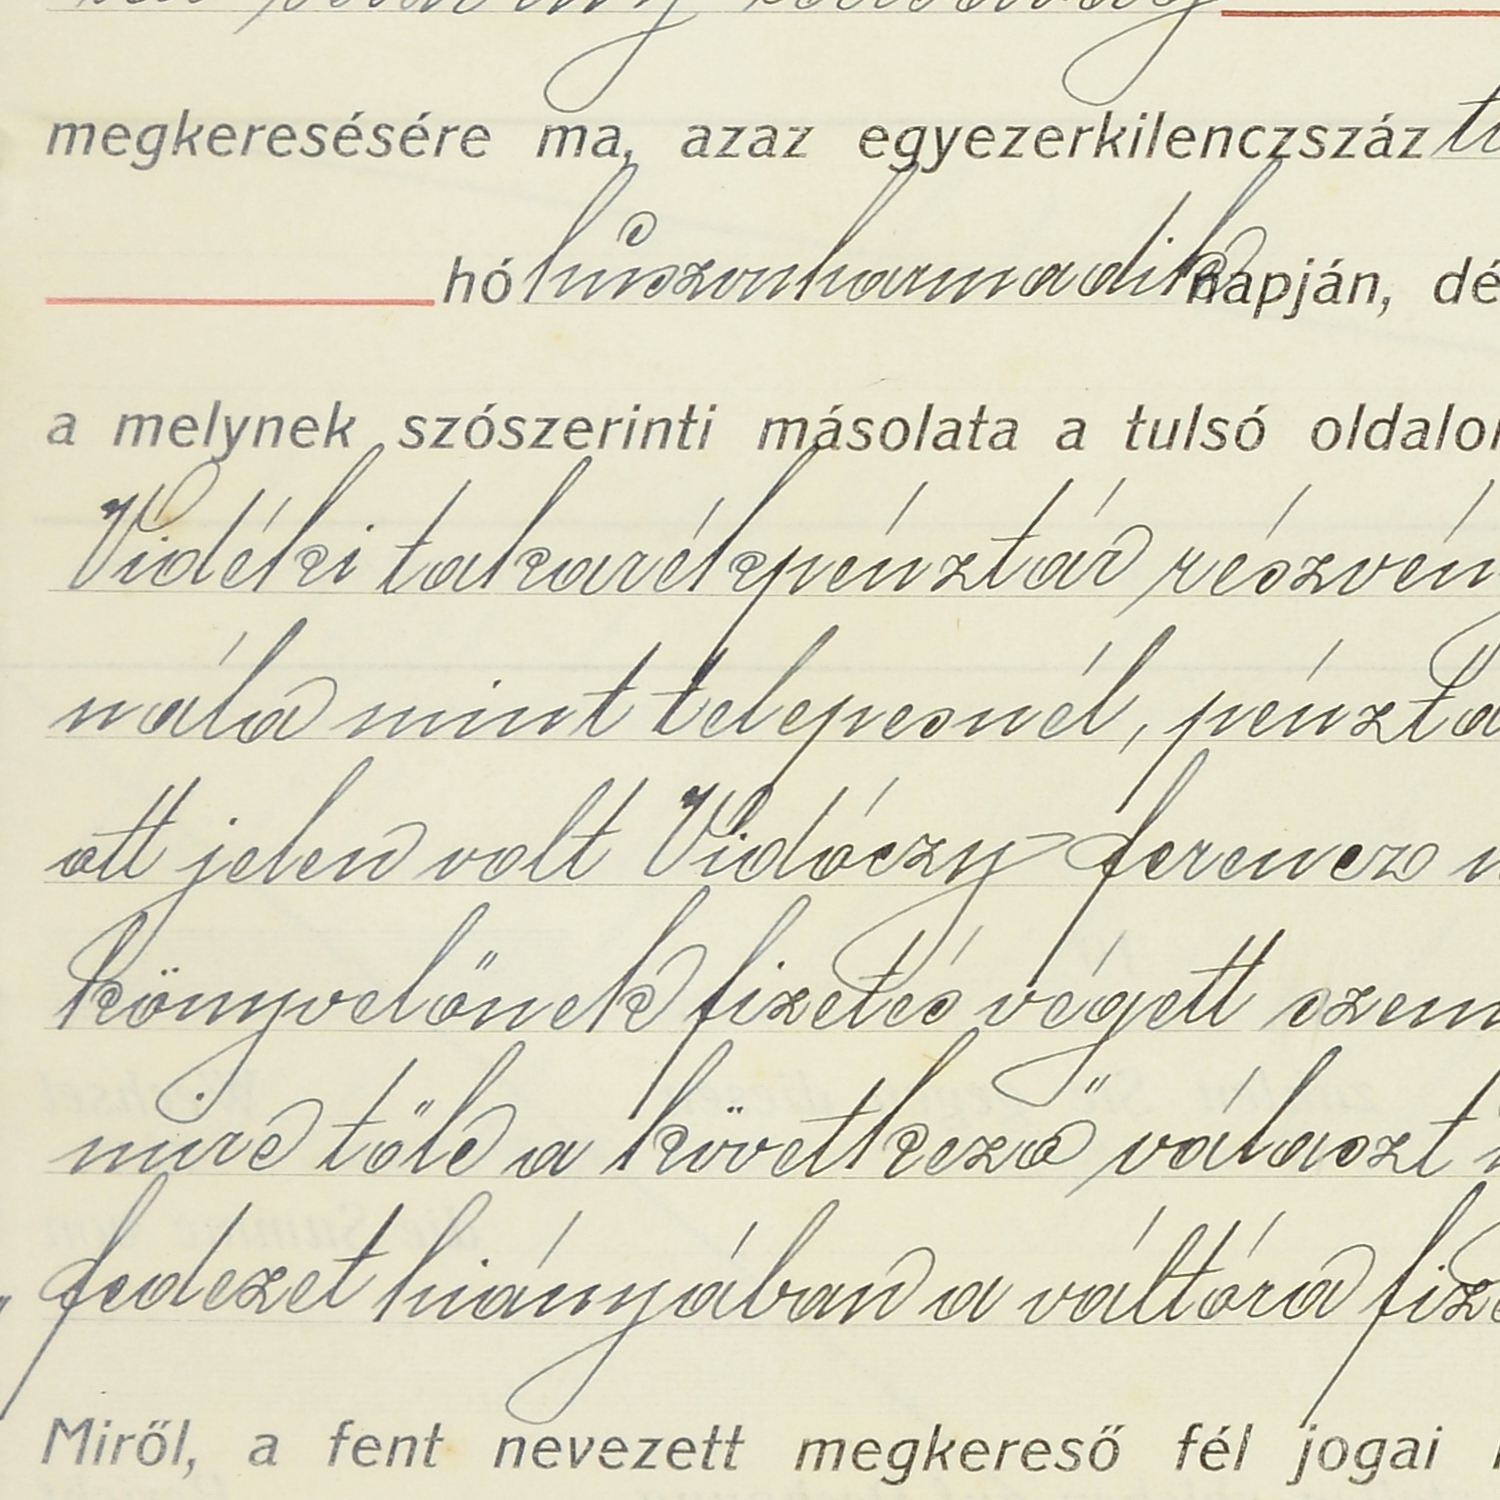 megkeresésére ma, azaz egyezerkilenczszáz
hó húszonharmadik napján, dé
a melynek szószerinti másolata a tulsó oldalon
Vidéki takarékpénztár részvén
nála mint telepesnél, pénztá
ott jelen volt Vidóczy ferencz
könyvelőnek fizetés végett szem
mire tőle a következő választ
„fedezet hiányában a váltóra fize
Miről, a fent nevezett megkereső fél jogai